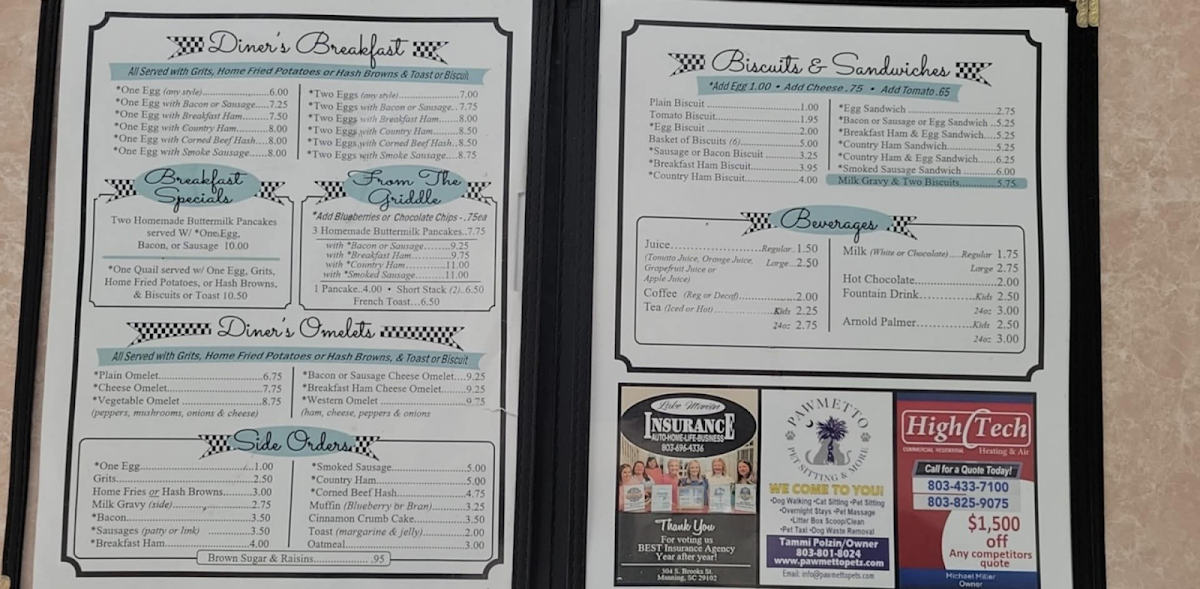 Diner's Breakfast
All Served with Grits, Home Fried Potatoes or Hash Browns & Toast or Biscuit
*One Egg (any style)..........6.00
*One Egg with Bacon or Sausage..7.25
*One Egg with Breakfast Ham......7.50
*One Egg with Country Ham........8.00
*One Egg with Corned Beef Hash..8.00
*One Egg with Smoke Sausage.....8.00
*Two Eggs (any style)..........7.00
*Two Eggs with Bacon or Sausage..7.75
*Two Eggs with Breakfast Ham......8.00
*Two Eggs with Country Ham.......8.50
*Two Eggs with Corned Beef Hash..8.50
*Two Eggs with Smoke Sausage....8.75
Breakfast
Specials
Two Homemade Buttermilk Pancakes
served W/ *One Egg,
Bacon, or Sausage 10.00
*One Quail served w/ One Egg, Grits,
Home Fried Potatoes, or Hash Browns,
& Biscuits or Toast 10.50
From The
Griddle
*Add Blueberries or Chocolate Chips - .75ea
3 Homemade Buttermilk Pancakes..7.75
with *Bacon or Sausage........9.25
with *Breakfast Ham..........9.75
with *Country Ham...........11.00
with *Smoked Sausage........11.00
1 Pancake..4.00 • Short Stack (2)..6.50
French Toast...6.50
Diner's Omelets
All Served with Grits, Home Fried Potatoes or Hash Browns, & Toast or Biscuit
*Plain Omelet..........6.75
*Cheese Omelet..........7.75
*Vegetable Omelet ..........8.75
(peppers, mushrooms, onions & cheese)
*Bacon or Sausage Cheese Omelet....9.25
*Breakfast Ham Cheese Omelet.....9.25
*Western Omelet ..........9.75
(ham, cheese, peppers & onions
Side Orders
*One Egg..........1.00
Grits..........2.50
Home Fries or Hash Browns........3.00
Milk Gravy (side)..........2.75
*Bacon..........3.50
*Sausages (patty or link) ..........3.50
*Breakfast Ham..........4.00
*Smoked Sausage..........5.00
*Country Ham..........5.00
*Corned Beef Hash..........4.75
Muffin (Blueberry or Bran)..........3.25
Cinnamon Crumb Cake..........3.50
Toast (margarine & jelly)..........2.00
Oatmeal..........3.00
Brown Sugar & Raisins..........95
Biscuits & Sandwiches
*Add Egg 1.00 • Add Cheese .75 • Add Tomato .65
Plain Biscuit ..........1.00
Tomato Biscuit..........1.95
*Egg Biscuit ..........2.00
Basket of Biscuits (6)..........5.00
*Sausage or Bacon Biscuit ..........3.25
*Breakfast Ham Biscuit..........3.95
*Country Ham Biscuit..........4.00
*Egg Sandwich ..........2.75
*Bacon or Sausage or Egg Sandwich ..5.25
*Breakfast Ham & Egg Sandwich....5.25
*Country Ham Sandwich..........5.25
*Country Ham & Egg Sandwich.....6.25
*Smoked Sausage Sandwich ........6.00
Milk Gravy & Two Biscuits..........5.75
Beverages
Juice..........Regular..1.50
(Tomato Juice, Orange Juice, Large...2.50
Grapefruit Juice or
Apple Juice)
Coffee (Reg or Decaf)..........2.00
Tea (Iced or Hot)..........Kids 2.25
24oz 2.75
Milk (White or Chocolate)....Regular 1.75
Large 2.75
Hot Chocolate..........2.00
Fountain Drink..........Kids 2.50
24oz 3.00
Arnold Palmer..........Kids 2.50
24oz 3.00
Lake Marion
INSURANCE
AUTO-HOME-LIFE-BUSINESS
803-696-4336
Thank You
For voting us
BEST Insurance Agency
Year after year!
304 S. Brooks St.
Manning, SC 29102
PAWMETTO
PET SITTING & MORE
WE COME TO YOU!
•Dog Walking •Cat Sitting •Pet Sitting
•Overnight Stays •Pet Massage
•Litter Box Scoop/Clean
•Pet Taxi •Dog Waste Removal
Tammi Polzin/Owner
803-801-8024
www.pawmettopets.com
Email: info@pawmettopets.com
High Tech
COMMERCIAL RESIDENTIAL
Heating & Air
Call for a Quote Today!
803-433-7100
803-825-9075
$1,500
off
Any competitors
quote
Michael Miller
Owner